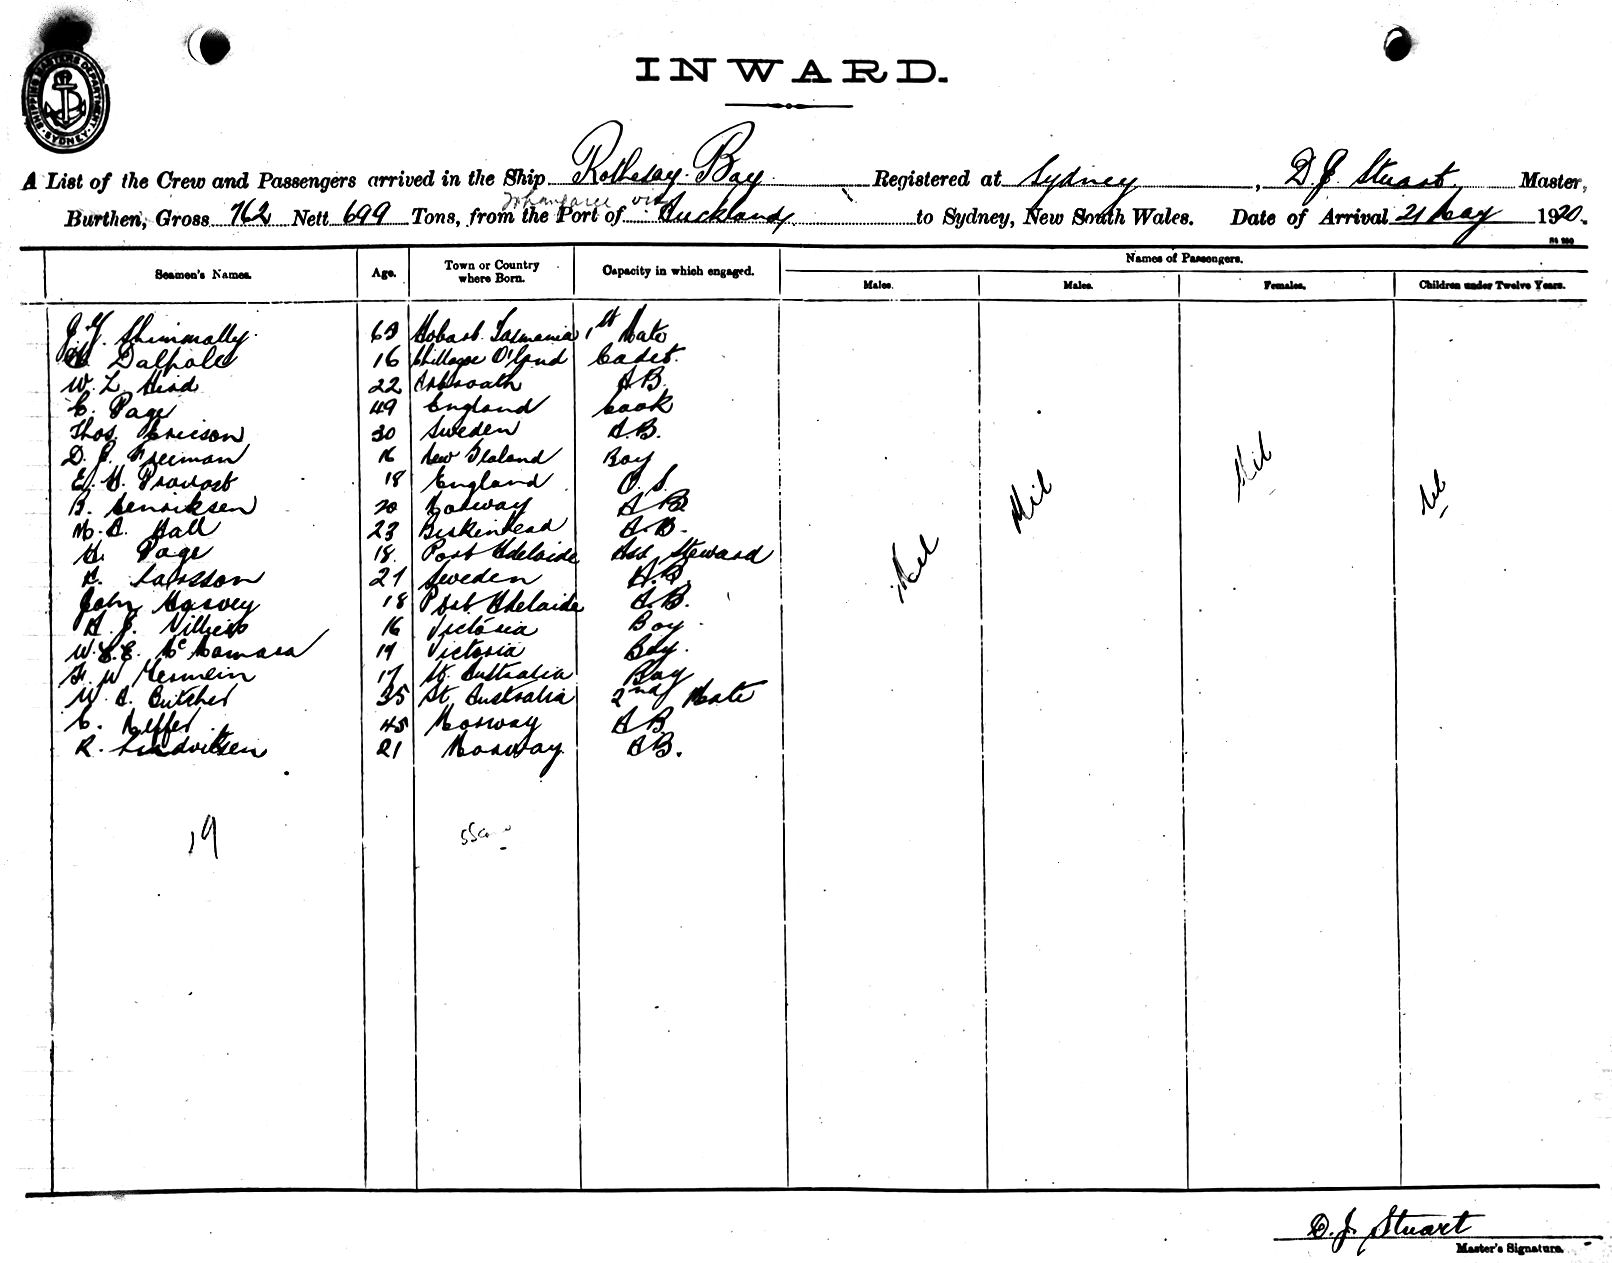 SHIPPING MASTERS DEPARTMENT SYDNEY
INWARD.
A List of the Crew and Passengers arrived in the Ship Rothesay Bay Registered at Sydney, D. J. Stuart, Master,
via
Burthen, Gross 762 Nett 699 Tons, from the Port of Auckland to Sydney, New South Wales. Date of Arrival 21 May 1920.
Names of Passengers.
Seamen's Names. Age. Town or Country where Born. Capacity in which engaged. Males. Males. Females. Children under Twelve Years.
63 Hobart Tasmania 1st Mate
Dalpole 16 Chillagoe Q'land Cadet.
W. L. Hird 22 Arbroath A B.
C. Page 49 England Cook
Thos. Ericson 30 Sweden A.B.
D. J. Freeman 16 New Zealand Boy
E. G. Provost 18 England O.S.
B. Henriksen 20 Norway A B
M. A. Hall 23 Birkenhead A.B.
H. Page 18. Port Adelaide Ass Steward
A. Larsson 21 Sweden A.B.
John Harvey 18 Port Adelaide A.B.
A. J. Villiers 16 Victoria Boy.
W. E. E. McNamara 19 Victoria Boy.
F. W. Germein 17 St. Australia Boy
W. A. Butcher 35 St. Australia 2nd Mate
C. 45 Norway A B
R. 21 Norway A B.
Nil Nil Nil Nil
19
D. J. Stuart
Master's Signature.